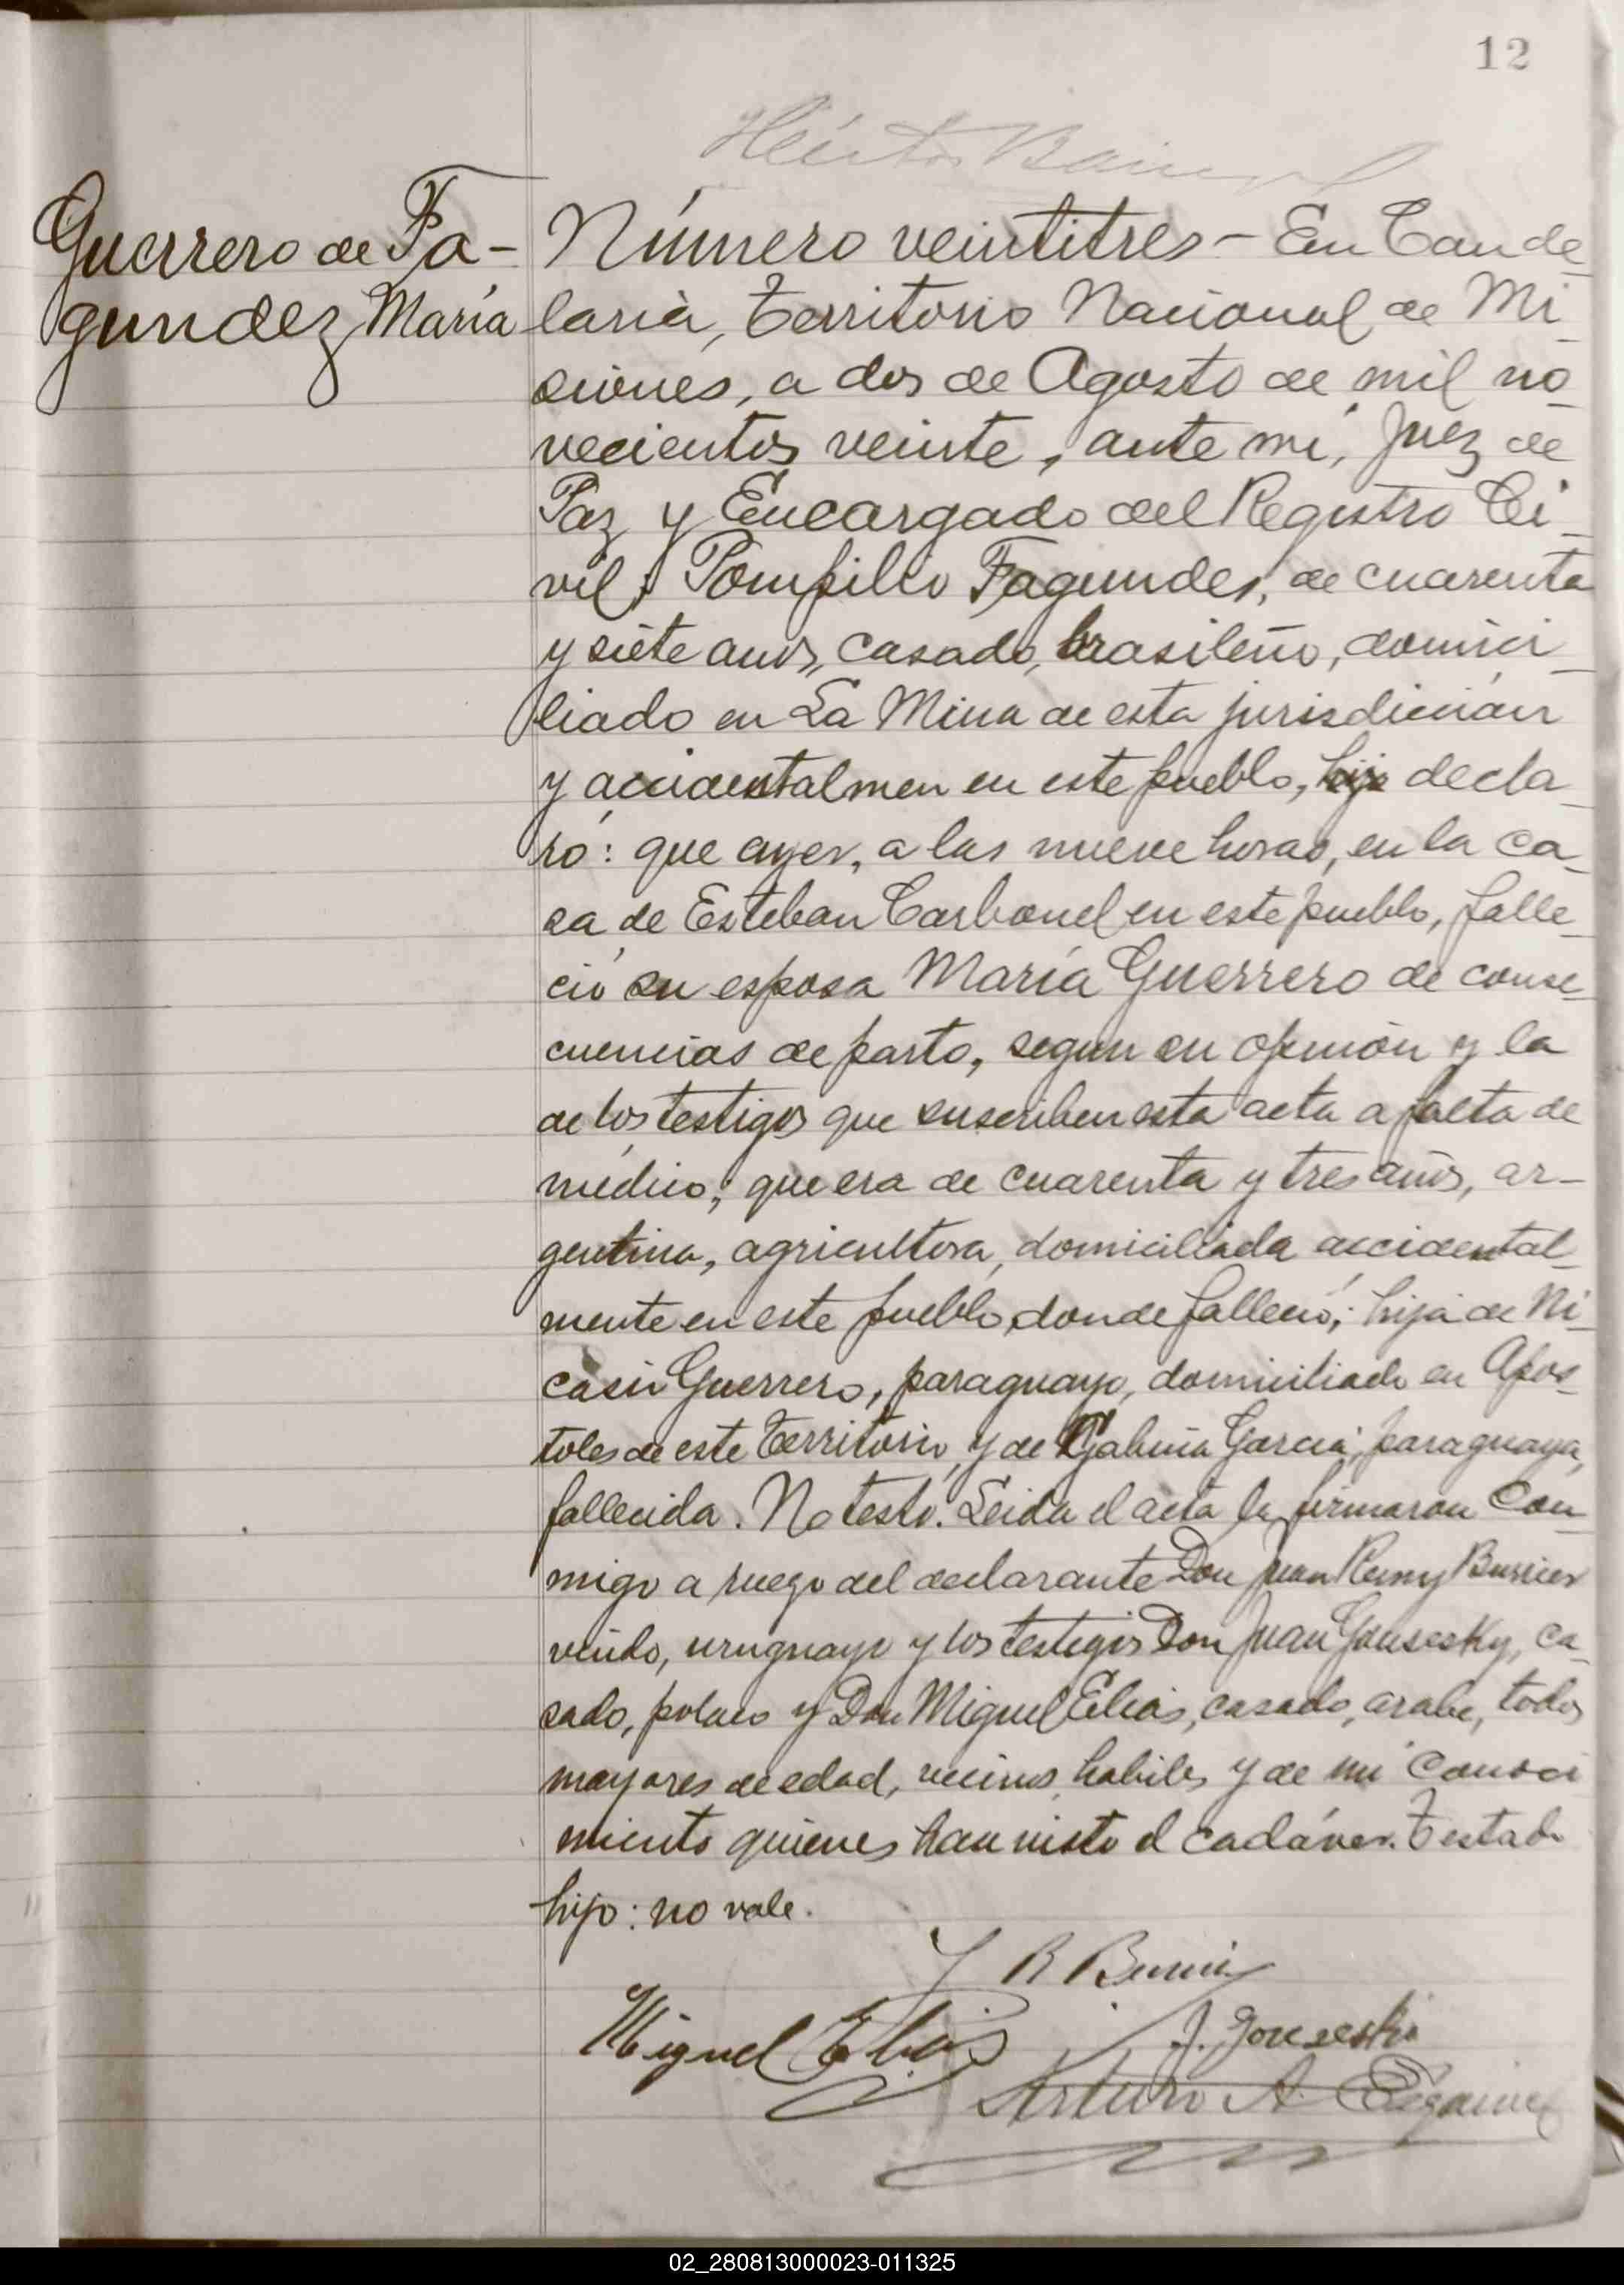 12
Guerrero de Fa-
gundez, María
Número veintitres - En Cande_
laria, Territorio Nacional de Mi_
siones, a dos de Agosto de mil no_
vecientos veinte, ante mi, Juez de
Paz y Encargado del Registro Ci_
vil; Pompilio Fagundes, de cuarenta
y siete años, casado, brasileño, domici_
liado en La Mina de esta jurisdicción
y accidentalmen en este pueblo, hijo decla_
ró: que ayer, a las nueve horas, en la ca_
sa de Esteban Carbonel en este pueblo, falle_
ció su esposa María Guerrero de conse_
cuencias de parto, segun su opinión y la
de los testigos que suscriben esta acta a falta de
médico; que era de cuarenta y tres años, ar-
gentina, agricultora, domiciliada accidental_
mente en este pueblo, donde falleció; hija de Ni_
casio Guerrero, paraguayo, domiciliado en Apos_
toles de este Territorio, y de Gabina Garcia, paraguaya,
fallecida. No testó. Leida el acta la firmaron con_
migo a ruego del declarante Don Juan Remy Burrier
viudo, uruguayo y los testigos Don Juan Gousesky, ca_
sado, polaco y Don Miguel Elias, casado, arabe, todos
mayores de edad, vecinos, habiles y de mi conoci
miento quienes han visto el cadáver. Testado
hijo: no vale.
J R Burrier
Miguel Elias
J. Gouseski
Arturo A.
02_280813000023-011325